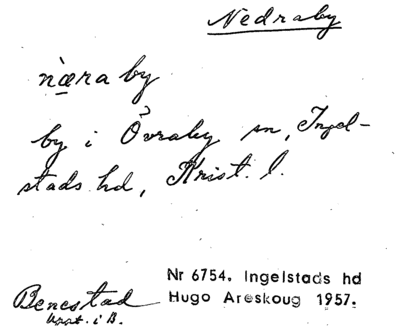 Nedraby
næra by
by i Övraby sn, Ingel-
stads hd, Krist. l.
Benestad
Nr 6754. Ingelstads hd
Hugo Areskoug 1957.